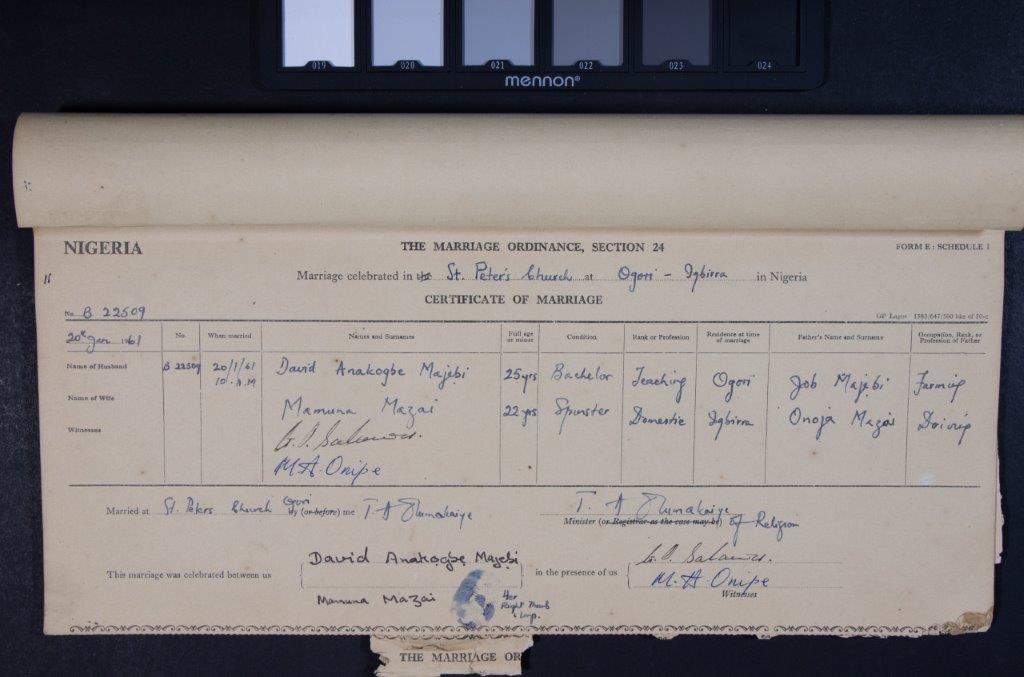 019 020 021 022 023 024
mennon®
NIGERIA THE MARRIAGE ORDINANCE, SECTION 24 FORM E : SCHEDULE 1
Marriage celebrated in the St. Peter's Church at Ogori - Igbirra in Nigeria
CERTIFICATE OF MARRIAGE
No B 22509
20th Jan 1961 No. When married Names and Surnames Full age or minor Condition Rank or Profession Residence at time of marriage Father's Name and Surname Occupation, Rank, or Profession of Father
Name of Husband B 22509 20/1/61 10.A.M David Anakogbe Majẹbi 25yrs Bachelor Teaching Ogori Job Majẹbi Farming
Name of Wife Mamuna Mazai 22 yrs Spinster Domestic Igbirra Onoja Mazai
Witnesses
M. A. Onipe
Married at St. Peters Church Ogori by (or before) me T. A
T. A
Minister (or Registrar as the case may be) of Religion
David Anakọgbẹ Majẹbi
This marriage was celebrated between us in the presence of us
M. A. Onipe
Mamuna Mazai Her Right Thumb Imp.
Witnesses
THE MARRIAGE OR